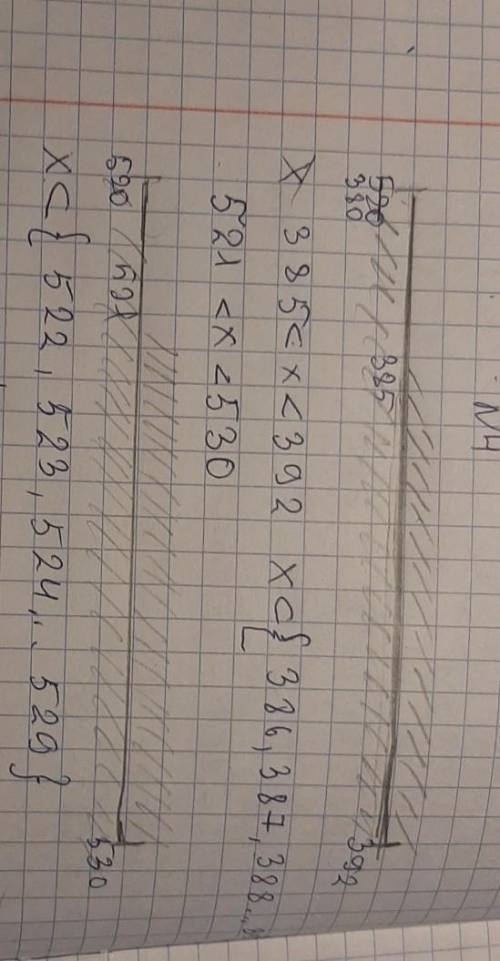 N4
385
380 392
385 < x < 392 x ⊂ { 386, 387, 388...
521 < x < 530
520 521 530
x ⊂ { 522, 523, 524, .. 529 }